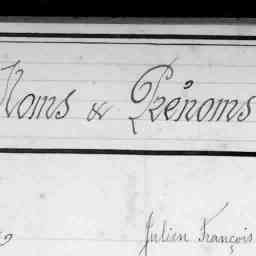 Noms & Prénoms
Julien François